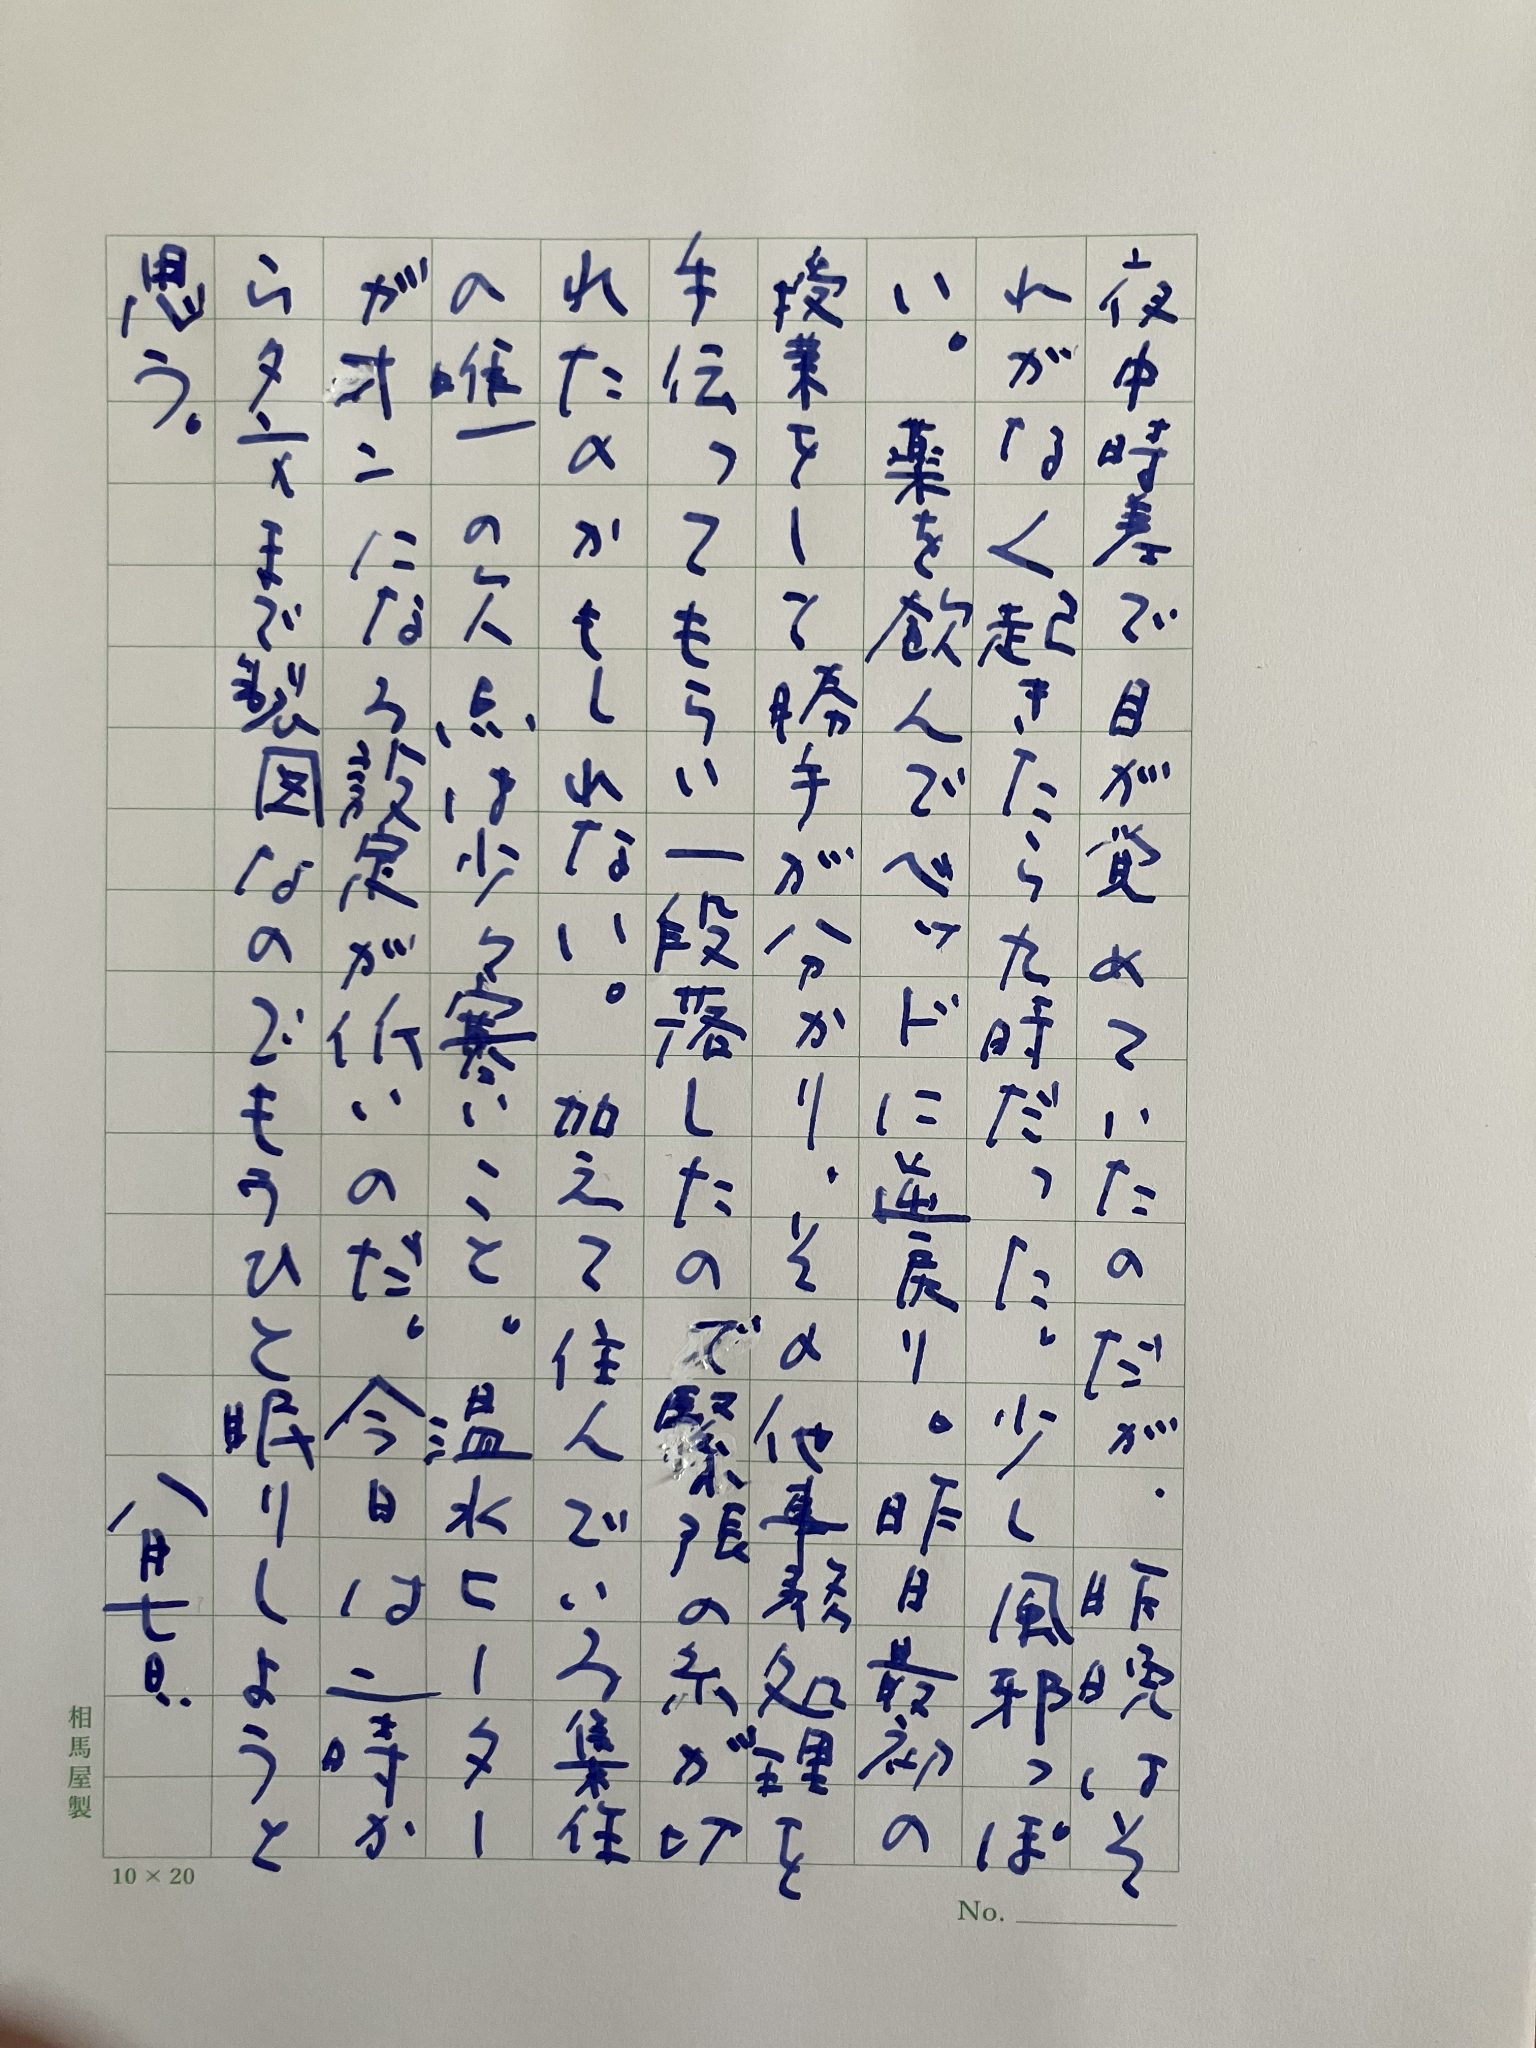 夜中時差で目が覚めていたのだが、昨晩はそ
れがなく起きたら九時だった。少し風邪っぽ
い。薬を飲んでベッドに逆戻り。昨日最初の
授業をして勝手が分かり、その他事務処理を
手伝ってもらい一段落したので緊張の糸が切
れたのかもしれない。加えて住んでいる集住
の唯一の欠点は少々寒いこと。温水ヒーター
がオンになる設定が低いのだ。今日は二時か
ら夕方まで製図なのでもうひと眠りしようと
思う。 八月七日
相馬屋製
10 × 20
No.